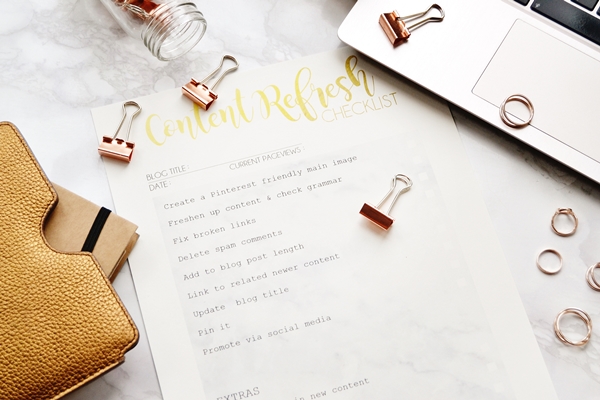 Content Refresh
CHECKLIST
BLOG TITLE CURRENT PAGEVIEWS
DATE
Create a Pinterest friendly main image
Freshen up content & check grammar
Fix broken links
Delete spam comments
Add to blog post length
Link to related newer content
Update blog title
Pin it
Promote via social media
EXTRAS
in new content